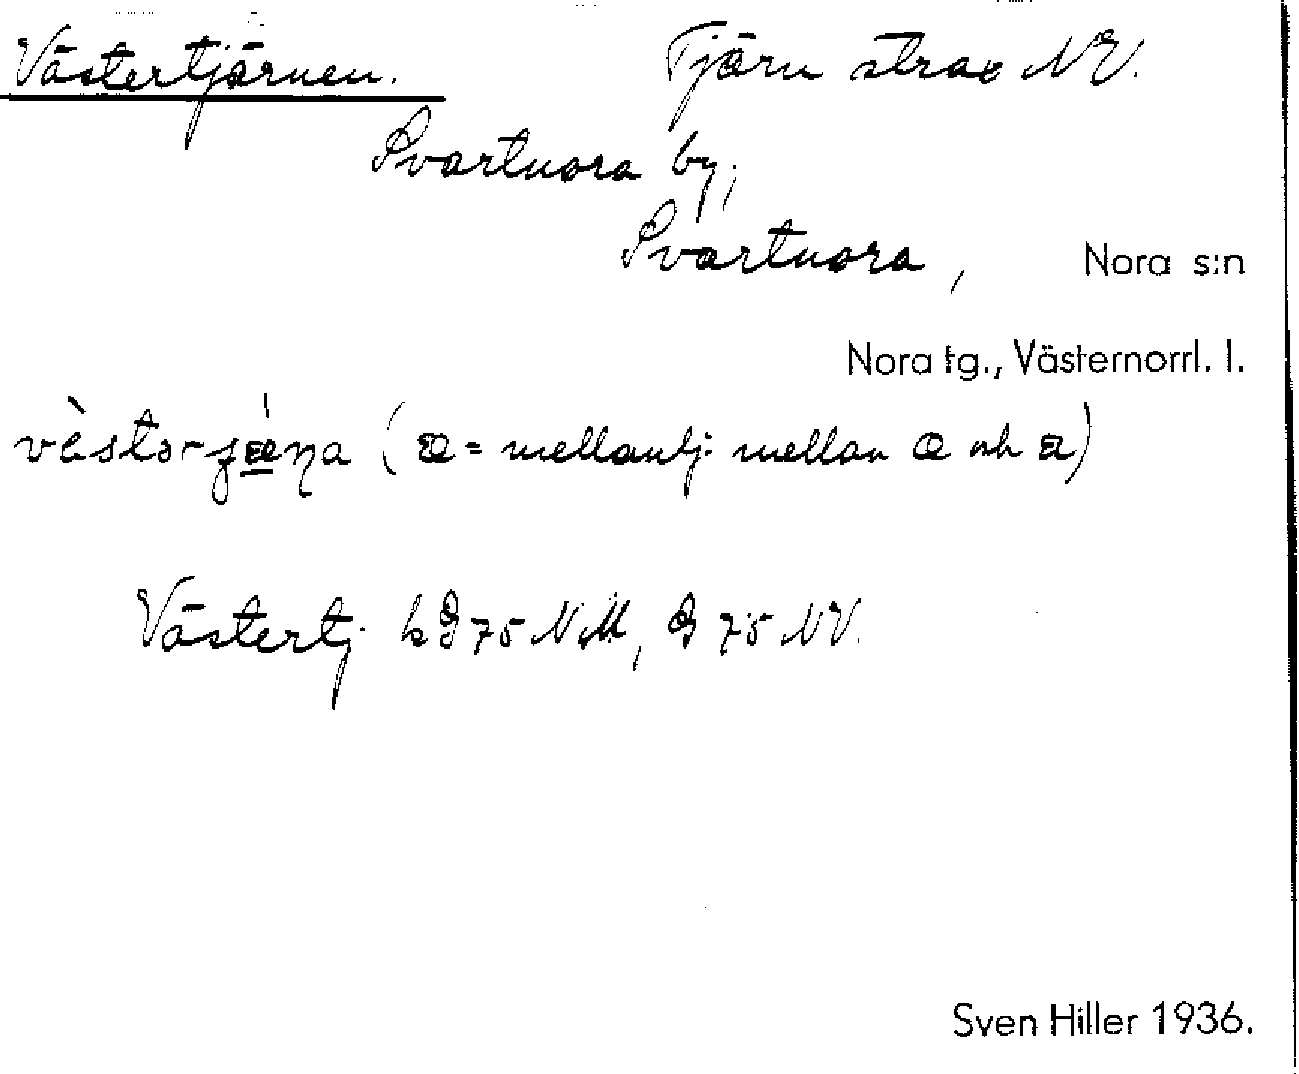 Västertjärnen. Tjärn strax NV.
Svartnora by,
Svartnora, Nora s:n
Nora tg., Västernorrl. l.
(æ = mellanlj. mellan a och ä)
Västertj. 75 NM, 75 NV.
Sven Hiller 1936.